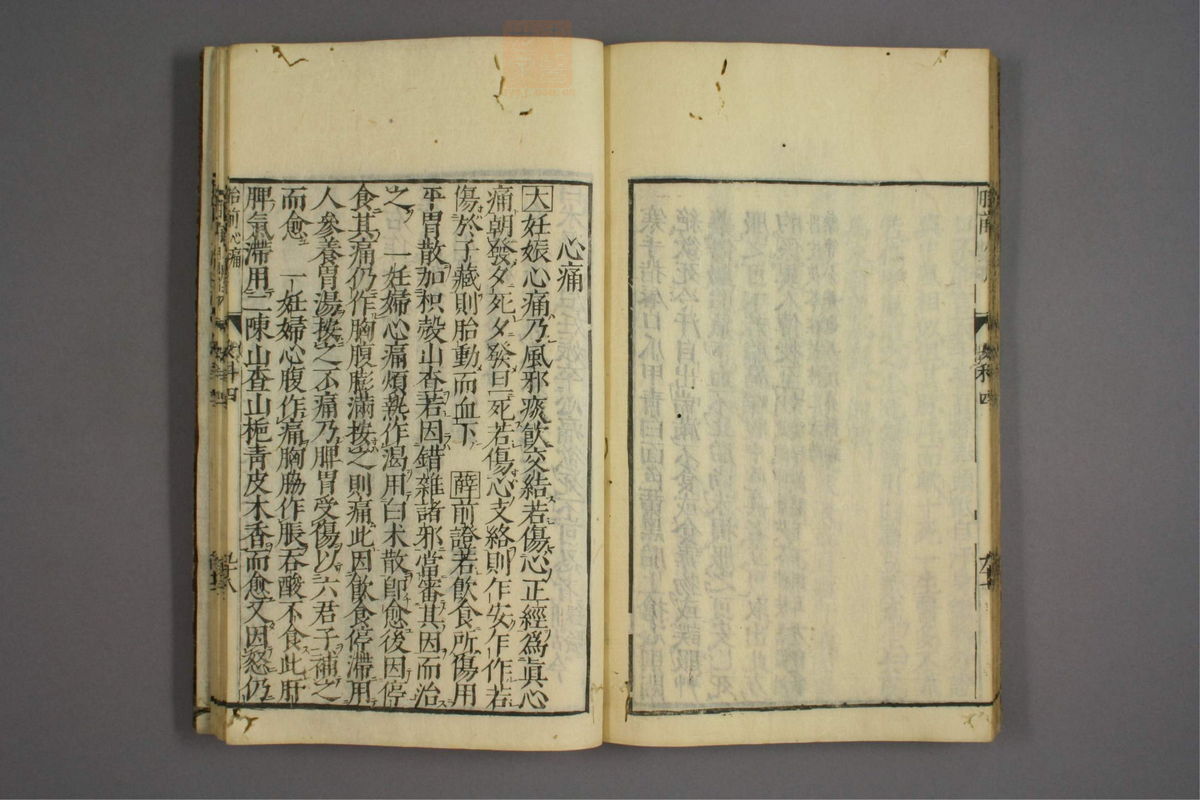 心痛
大妊娠心痛乃風邪痰飲交結若傷心正經爲眞心
痛朝發夕死夕發旦死若傷心支絡則作安乍作若
傷於子藏則胎動而血下　薛前證若飲食所傷用
平胃散加枳殼山查若因錯雜諸邪當審其因而治
之　一妊婦心痛煩熱作渴用白朮散卽愈後因停
食其痛仍作胸腹膨滿按之則痛此因飲食停滯用
人參養胃湯按之不痛乃脾胃受傷以六君子補之
而愈　一妊婦心腹作痛胸脇作脹吞酸不食此肝
脾氣滯用二陳山查山梔靑皮木香而愈又因怒仍
胎前心痛